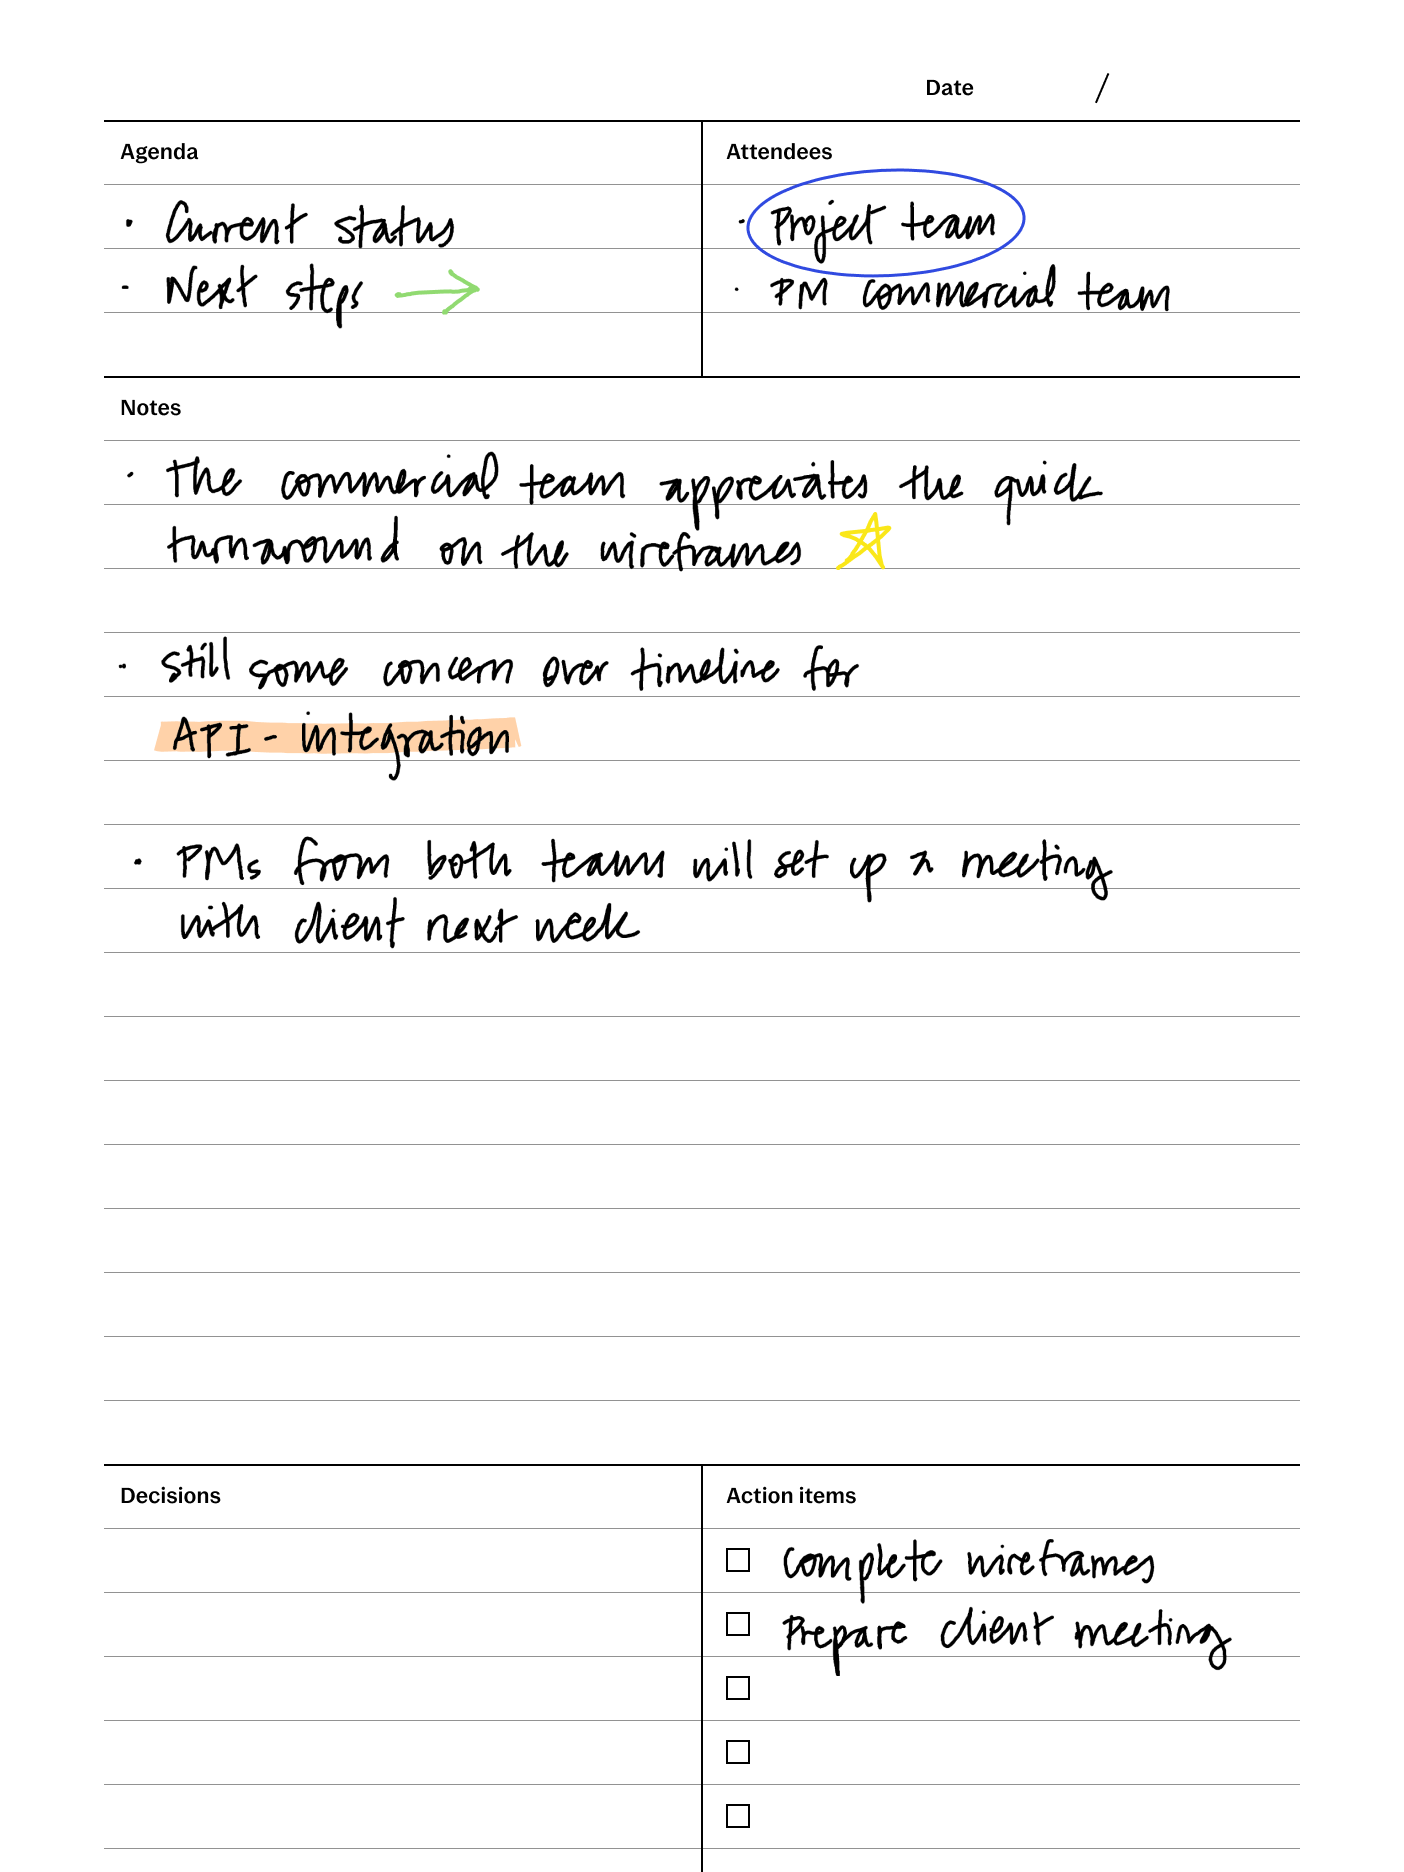 Date /
Agenda
· Current status
· Next steps →
Attendees
· Project team
· PM commercial team
Notes
· The commercial team appreciates the quick
turnaround on the wireframes
· Still some concern over timeline for
API - integration
· PMs from both teams will set up a meeting
with client next week
Decisions
Action items
Complete wireframes
Prepare client meeting